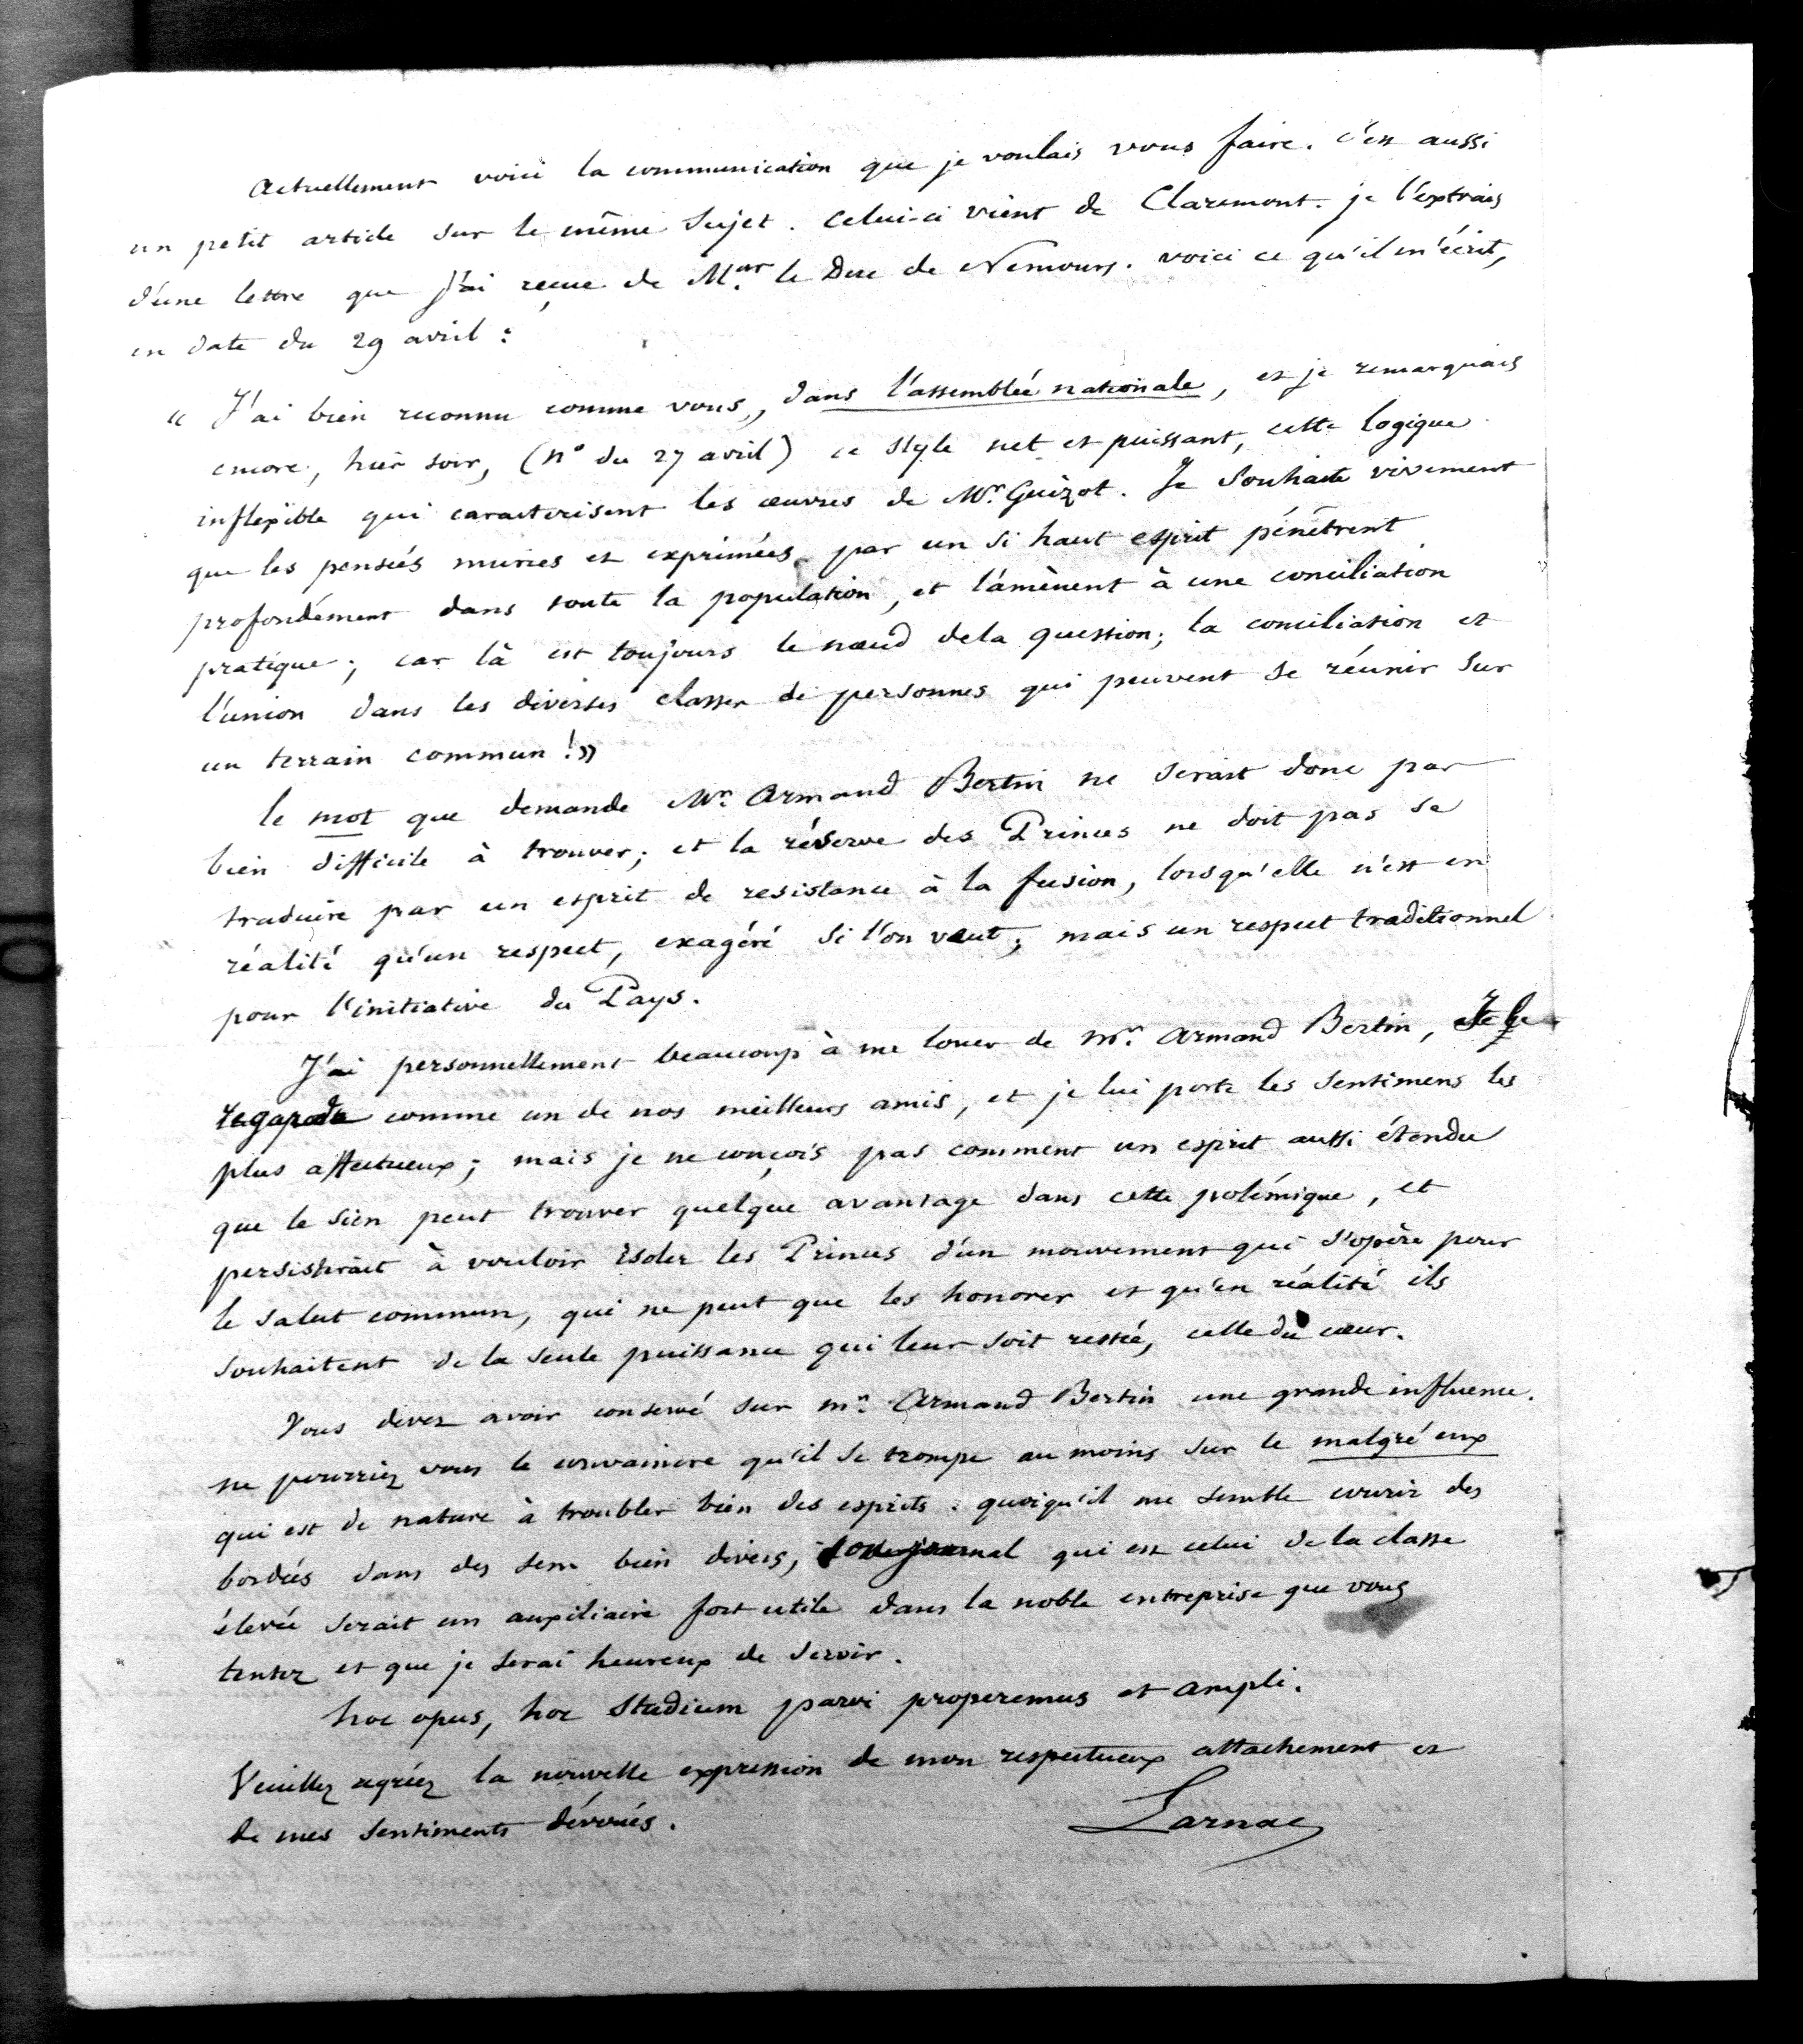 Actuellement voici la communication que je voulais vous faire. c'est aussi
un petit article sur le même sujet. Celui-ci vient de Claremont. je l'extrais
d'une lettre que j'ai reçue de M.gr le Duc de Nemours. voici ce qu'il m'écrit,
en date du 29 avril :
« J'ai bien reconnu comme vous, dans l'assemblée nationale, et je remarquais
encore, hier soir, (n° du 27 avril) ce style net et puissant, cette logique
inflexible qui caracterisent les œuvres de Mr. Guizot. Je souhaite vivement
que les pensées muries et exprimées par un si haut esprit pénètrent
profondément dans toute la population, et l'amènent à une conciliation
pratique ; car là est toujours le nœud de la question ; la conciliation et
l'union dans les diverses classes de personnes qui peuvent se réunir sur
un terrain commun ! »
le mot que demande Mr. Armand Bertin ne serait donc pas
bien difficile à trouver ; et la réserve des Princes ne doit pas se
traduire par un esprit de resistance à la fusion, lorsqu'elle n'est en
réalité qu'un respect, exagéré si l'on veut ; mais un respect traditionnel
pour l'initiative du Pays.
J'ai personnellement beaucoup à me louer de Mr. Armand Bertin, Je le
regarde comme un de nos meilleurs amis, et je lui porte les sentimens les
plus affectueux ; mais je ne conçois pas comment un esprit aussi étendu
que le sien peut trouver quelque avantage dans cette polémique, et
persisterait à vouloir isoler les Princes d'un mouvement qui s'opère pour
le salut commun, qui ne peut que les honorer et qu'en réalité ils
souhaitent de la seule puissance qui leur soit restée, celle du cœur.
Vous devez avoir conservé sur Mr. Armand Bertin une grande influence.
ne pourriez vous le convaincre qu'il se trompe au moins sur le malgré eux
qui est de nature à troubler bien des esprits. quoiqu'il me semble courir des
bordées dans des sens bien divers, son journal qui est celui de la classe
élevée serait un auxiliaire fort utile dans la noble entreprise que vous
tentez et que je serai heureux de servir.
hoc opus, hoc studium parvi properemus et ampli.
Veuillez agréez la nouvelle expression de mon respectueux attachement et
de mes sentiments dévoués.
Larnac